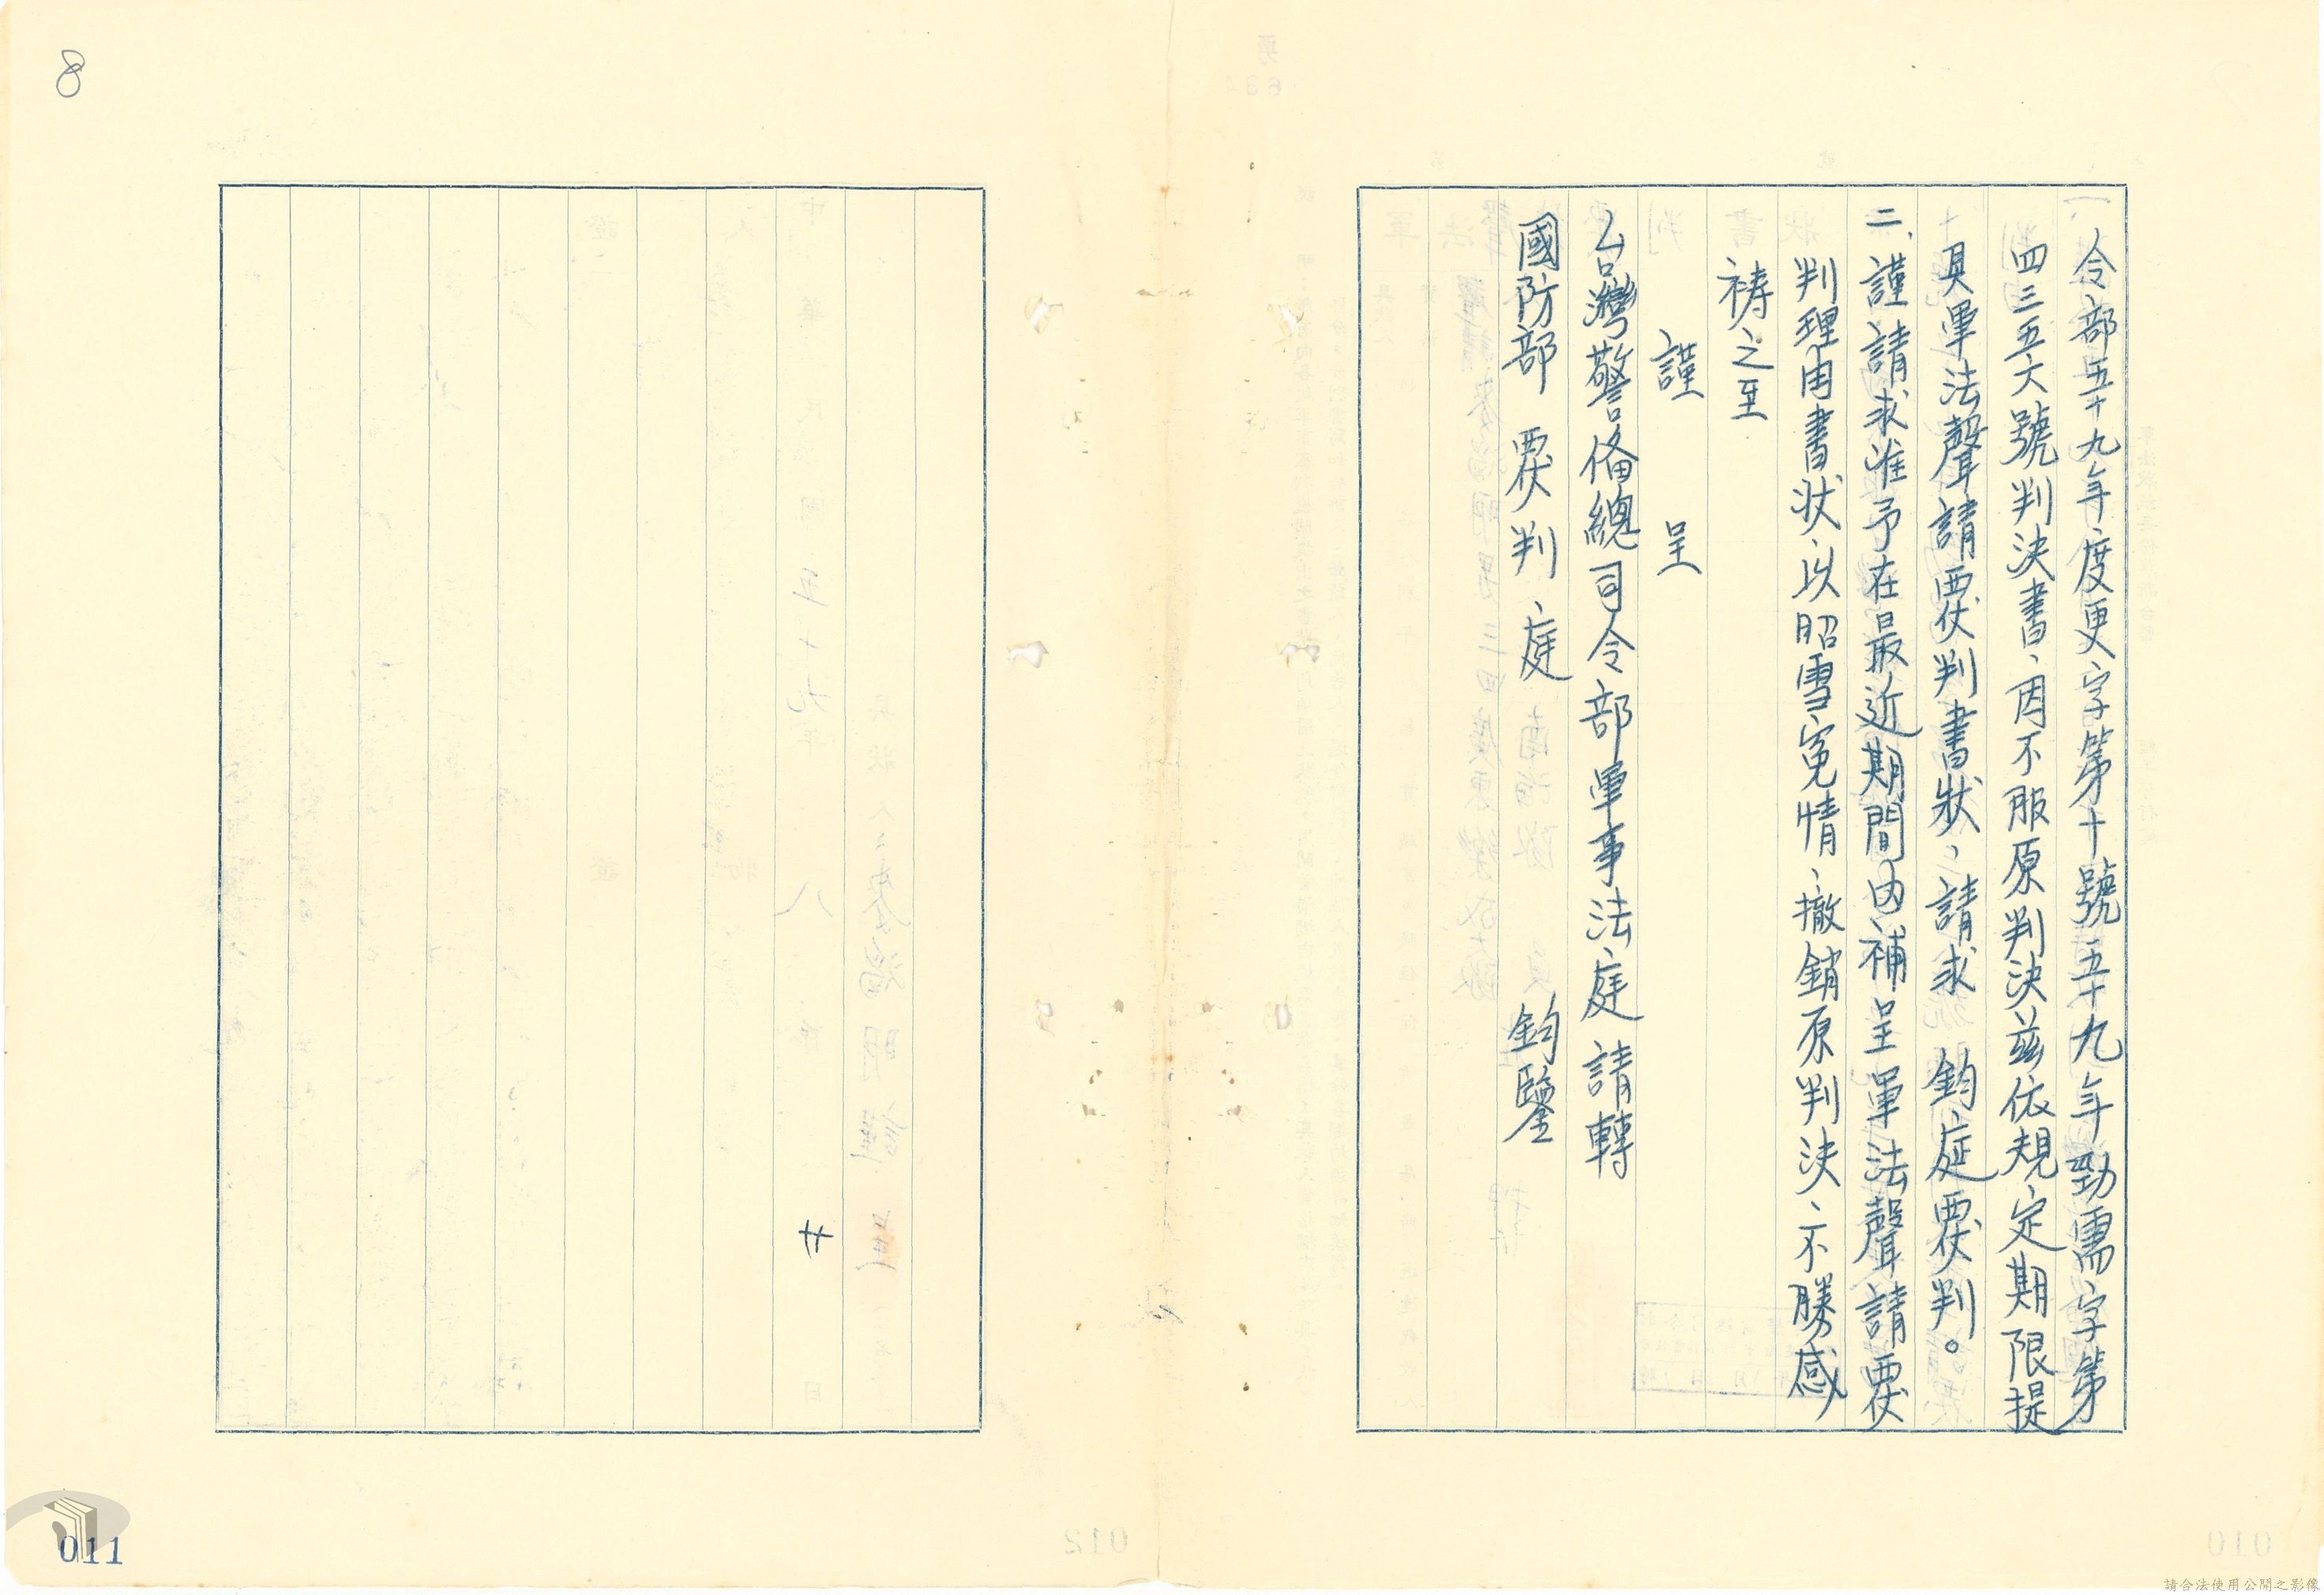 令部五十九年度更字第十號五十九年勁需字第
四三五六號判決書、因不服原判決茲依規定期限提
具軍法聲請覆判書狀、請求 鈞庭覆判。
二、謹請求准予在最近期間內補呈軍法聲請覆
判理由書狀、以昭雪冤情、撤銷原判決、不勝感
禱之至
謹 呈
台灣警備總司令部軍事法庭 請轉
國防部 覆判庭 鈞鑒
8
011
請合法使用公開之影像